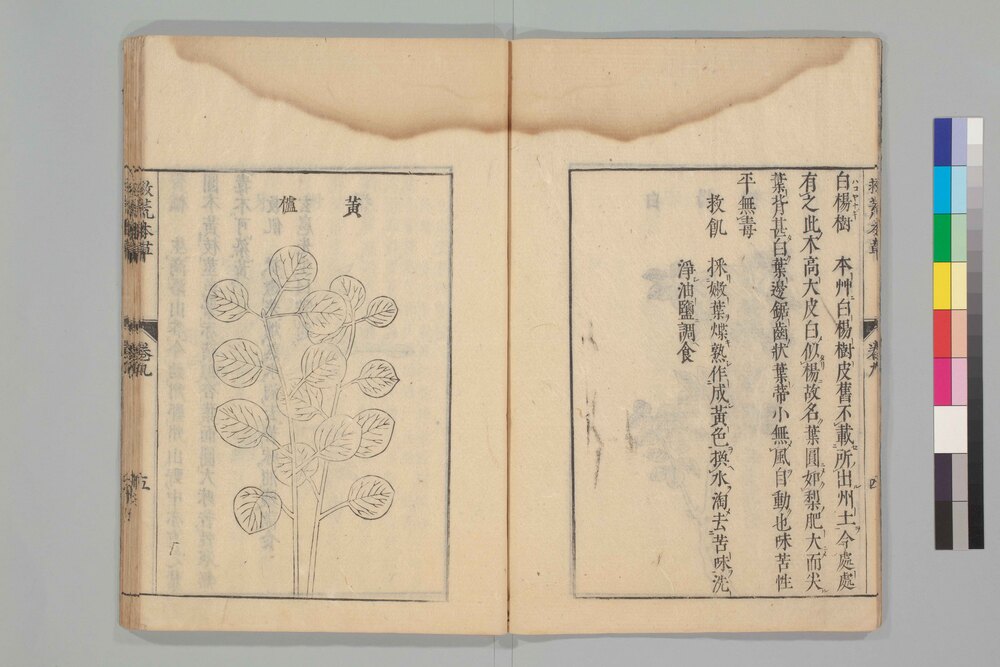 白楊樹 本艸白楊樹皮舊不載所出州土今處處
有之此木高大皮白似楊故名葉圓如梨肥大而尖
葉背甚白葉邊鋸齒狀葉蒂小無風自動也味苦性
平無毒
救飢 採嫩葉煠熟作成黃色換水淘去苦味洗
淨油鹽調食
救荒本草
卷九
四
黃
櫨
救荒本草
卷九
五